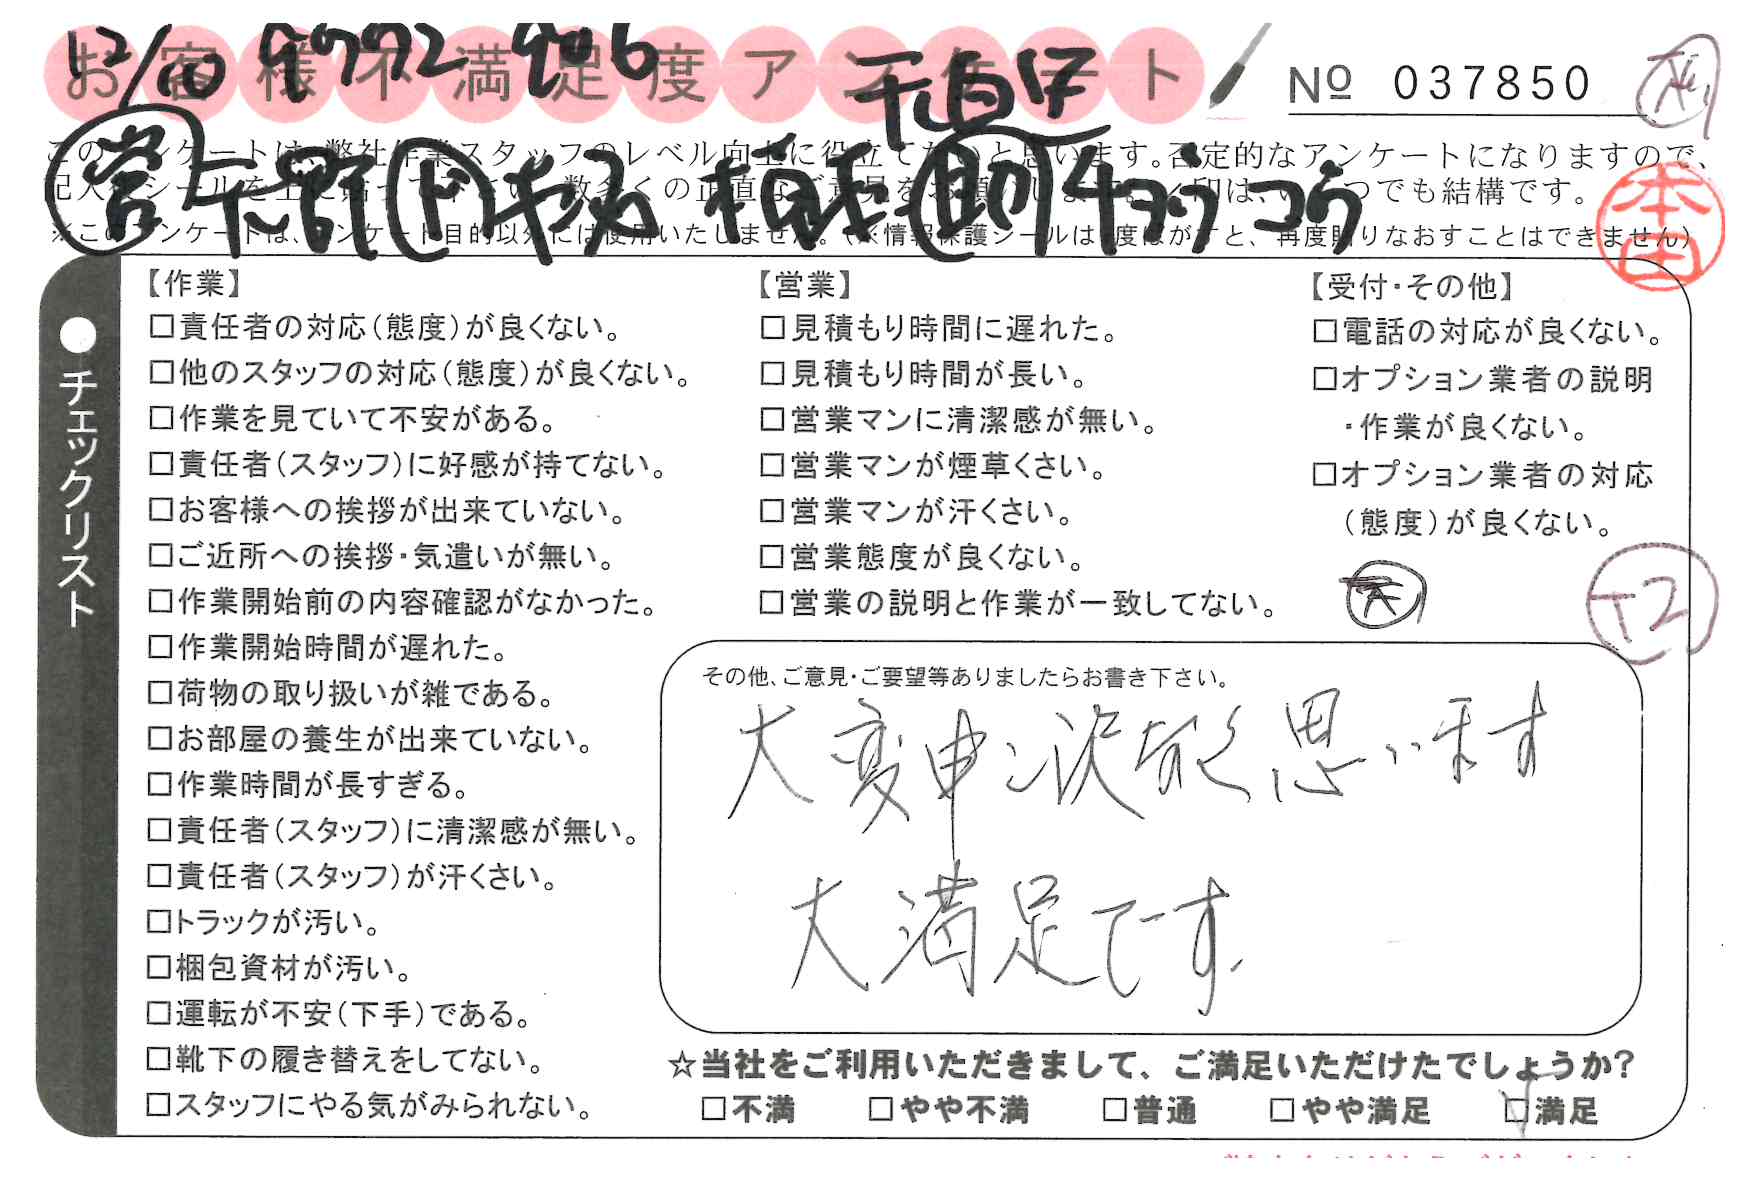 お客様不満足度アンケート
12/10
No 037850
このアンケートは、弊社作業スタッフのレベル向上に役立てたいと思います。否定的なアンケートになりますので、
※このアンケートは、アンケート目的以外には使用いたしません。(※情報保護シールは1度はがすと、再度貼りなおすことはできません)
本田
●チェックリスト
【作業】
□責任者の対応(態度)が良くない。
□他のスタッフの対応(態度)が良くない。
□作業を見ていて不安がある。
□責任者(スタッフ)に好感が持てない。
□お客様への挨拶が出来ていない。
□ご近所への挨拶・気遣いが無い。
□作業開始前の内容確認がなかった。
□作業開始時間が遅れた。
□荷物の取り扱いが雑である。
□お部屋の養生が出来ていない。
□作業時間が長すぎる。
□責任者(スタッフ)に清潔感が無い。
□責任者(スタッフ)が汗くさい。
□トラックが汚い。
□梱包資材が汚い。
□運転が不安(下手)である。
□靴下の履き替えをしてない。
□スタッフにやる気がみられない。
【営業】
□見積もり時間に遅れた。
□見積もり時間が長い。
□営業マンに清潔感が無い。
□営業マンが煙草くさい。
□営業マンが汗くさい。
□営業態度が良くない。
□営業の説明と作業が一致してない。
【受付・その他】
□電話の対応が良くない。
□オプション業者の説明
・作業が良くない。
□オプション業者の対応
(態度)が良くない。
T2
その他、ご意見・ご要望等ありましたらお書き下さい。
大変申し訳なく思います
大満足です.
☆当社をご利用いただきまして、ご満足いただけたでしょうか?
□不満 □やや不満 □普通 □やや満足 □満足